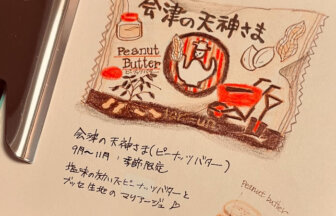 会津の天神さま
Peanut
Butter
会津の天神さま(ピーナッツバター)
9月〜11月 季節限定
塩味の効いたピーナッツバターと
ブッセ生地のマリアージュ♪
Peanut butter